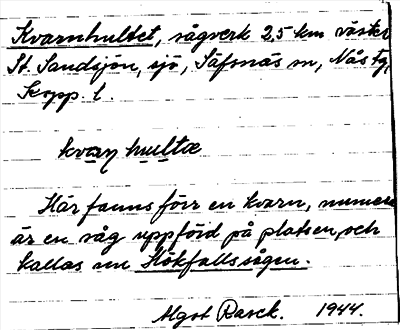 Kvarnhultet, sågverk 2,5 km väster
St. Sandsjön, sjö, Säfsnäs sn, Nås tg,
Kopp. l.
kvaṇ hultæ
Här fanns förr en kvarn, numera
är en såg uppförd på platsen, och
kallas nu Hökfallssågen.
Algot Rasck. 1944.